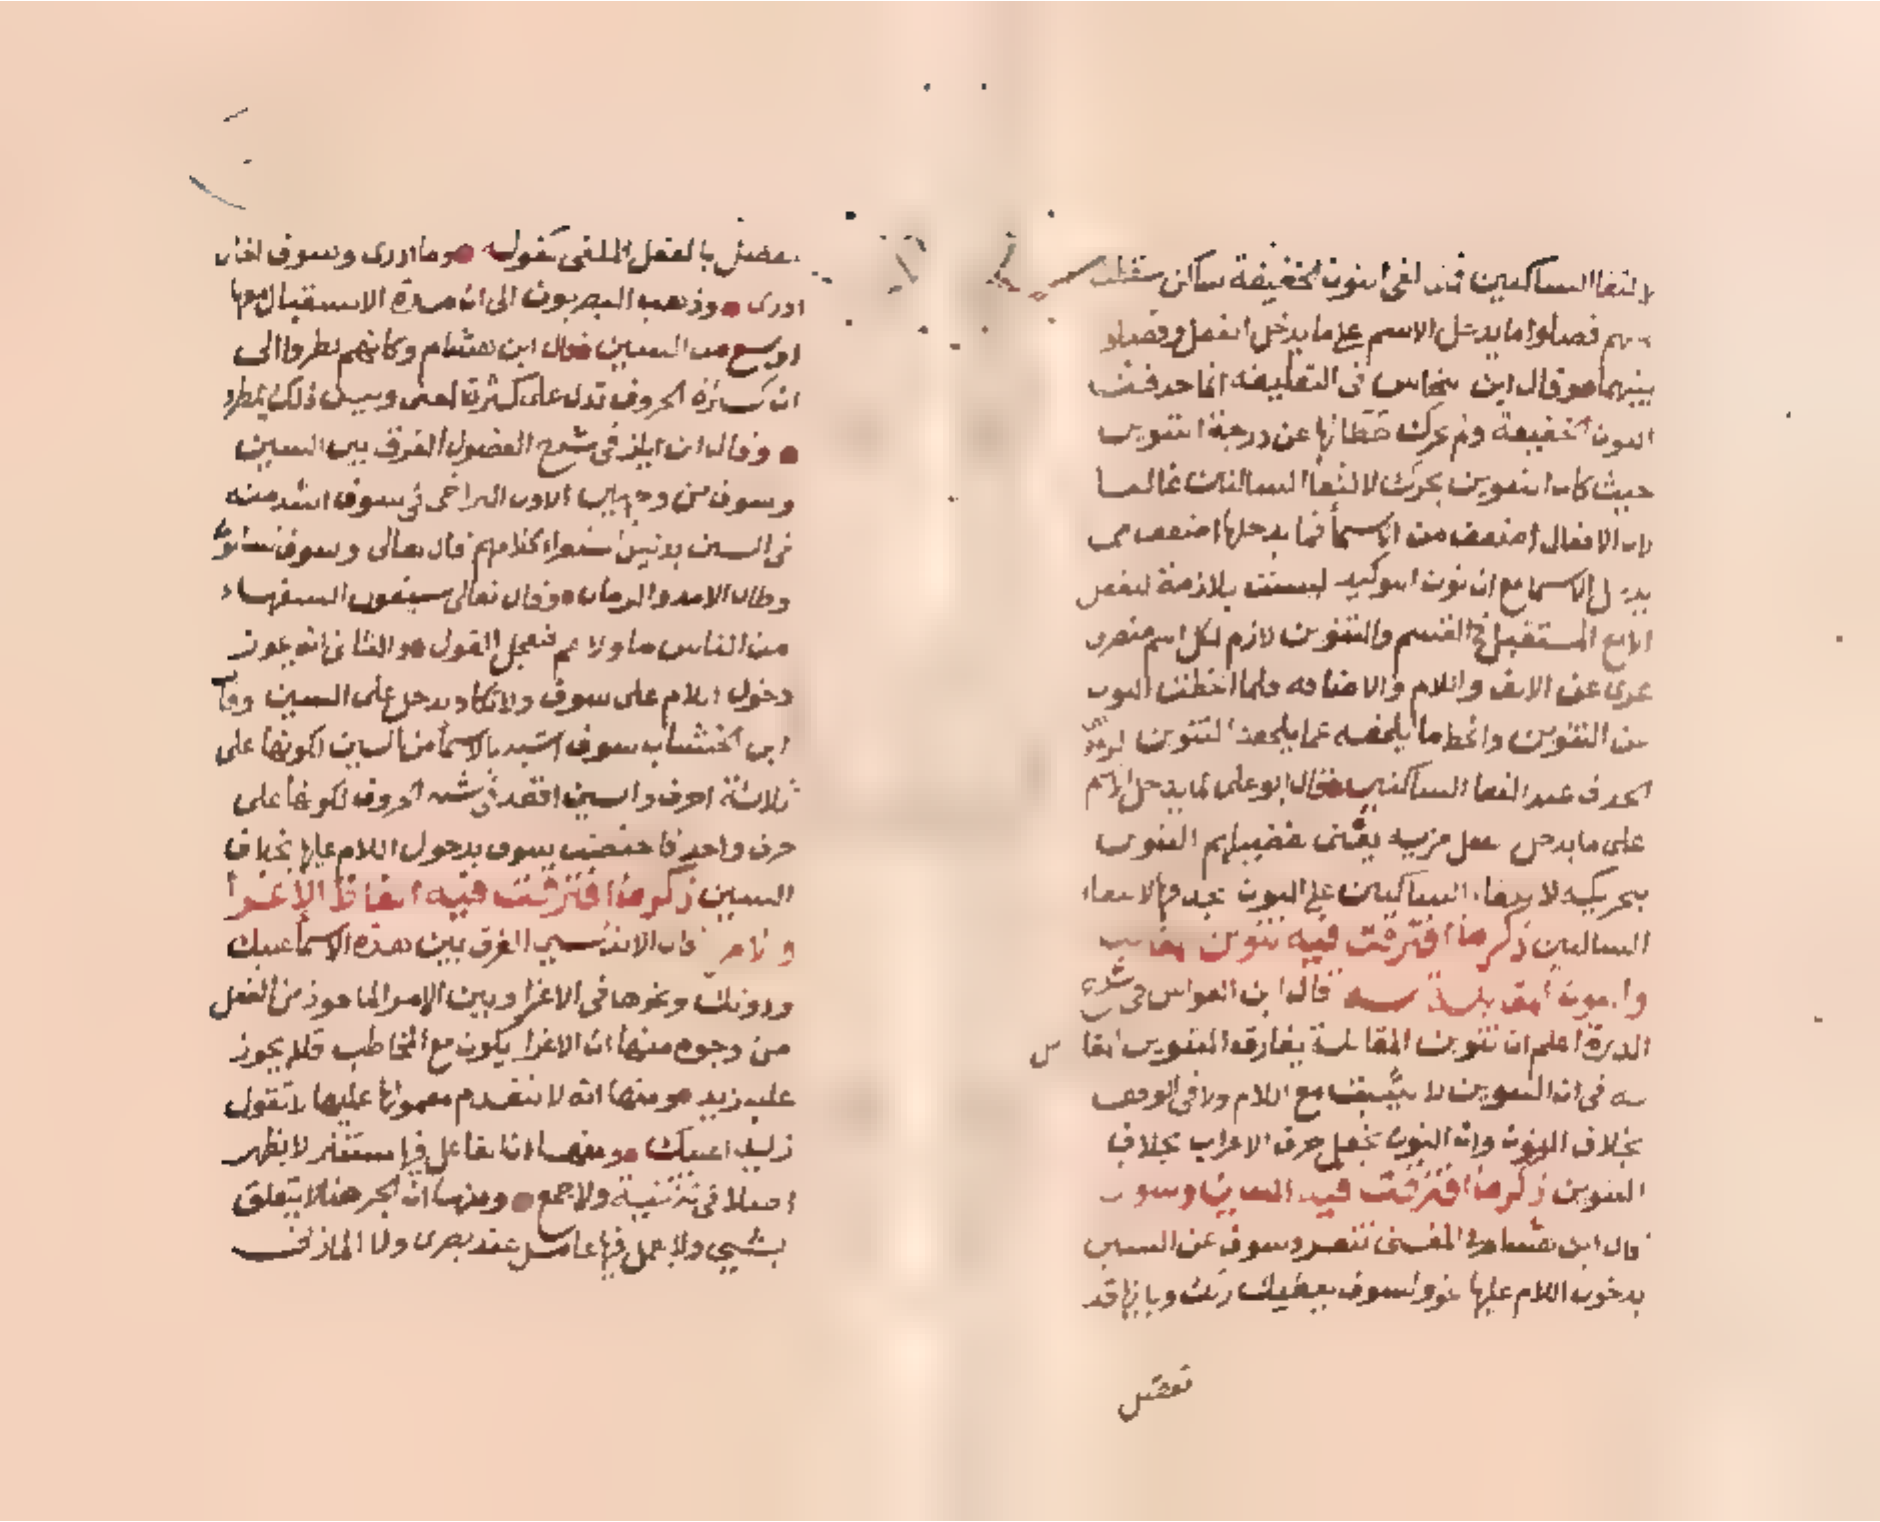 لالتقا الساكنين فمتى لقى النون الخفيفة ساكن سقطت
فصلوا ما يدخل الاسم على ما يدخل الفعل وفصلوا
بينهما وقال ابن النحاس فى التعليقه انما حذفت
النون الخفيفة ولم تحرك حطا لها عن درجة التنوين
حيث كان التنوين يحرك لالتقا الساكنين غالبا
لان الافعال اضعف من الاسما فما يدخلها اضعف مما
يدخل الاسما مع ان نون التوكيد ليست بلازمة للفعل
الا مع المستقبل فى القسم والتنوين لازم لكل اسم منصرف
عرى عن الالف واللام والاضافه فلما انحطت النون
عن التنوين وانحط ما يلحقه عما يلحقه التنوين
الحذف عند التقا الساكنين قال ابو على لما يدخل الاسم
على ما يدخل الفعل مزيه يعنى تفضيلهم التنوين
بتحريكه لالتقاء الساكنين على النون بحذفها لالتقاء
الساكنين ذكر ما افترقت فيه تنوين المقابلة
والنون المقابلة له قال ابن القواس فى شرح
الدرة اعلم ان تنوين المقابلة يفارق التنوين المقا
له فى ان التنوين لا يثبت مع اللام ولا فى الوقف
بخلاف النون وان النون تجعل حرف الاعراب بخلاف
التنوين ذكر ما افترقت فيه السين وسوف
قال ابن هشام فى المغنى تنفرد سوف عن السين
بدخول اللام عليها نحو ولسوف يعطيك ربك وبانها قد
تفصل
تفصل بالفعل الملغى كقوله وما ادرى وسوف اخال
ادرى وذهب البصريون الى ان مدة الاستقبال معها
اوسع من السين قال ابن هشام وكانهم نظروا الى
ان كثرة الحروف تدل على كثرة المعنى وليس ذلك بمطرد
وقال ابن اياز فى شرح الفصول الفرق بين السين
وسوف من وجهين الاول التراخى فى سوف اشد منه
فى السين بدليل استقراء كلامهم قال تعالى وسوف تسالون
وطال الامد والزمان وقال تعالى سيقول السفهاء
من الناس ما ولاهم فتعجل القول والثانى انه يجوز
دخول اللام على سوف ولا تكاد تدخل على السين وقال
ابن الخشاب سوف اشبه بالاسما من السين لكونها على
ثلاثة احرف والسين اقعد فى شبه الحروف لكونها على
حرف واحد فاختصت سوف بدخول اللام عليها بخلاف
السين ذكر ما افترقت فيه الفاظ الاغرا
والامر قال الاندلسى الفرق بين هذه الاسما عليك
ودونك ونحوها فى الاغرا وبين الامر الماخوذ من الفعل
من وجوه منها ان الاغرا يكون مع المخاطب فلا يجوز
عليه زيد ومنها انه لا يتقدم معمولها عليها لا تقول
زيدا عليك ومنها ان الفاعل فيها مستتر لا يظهر
اصلا فى تثنية ولا جمع ومنها ان الجر هنا لا يتعلق
بشيى ولا عمل فيها عامل عند بصرى ولا المازنى